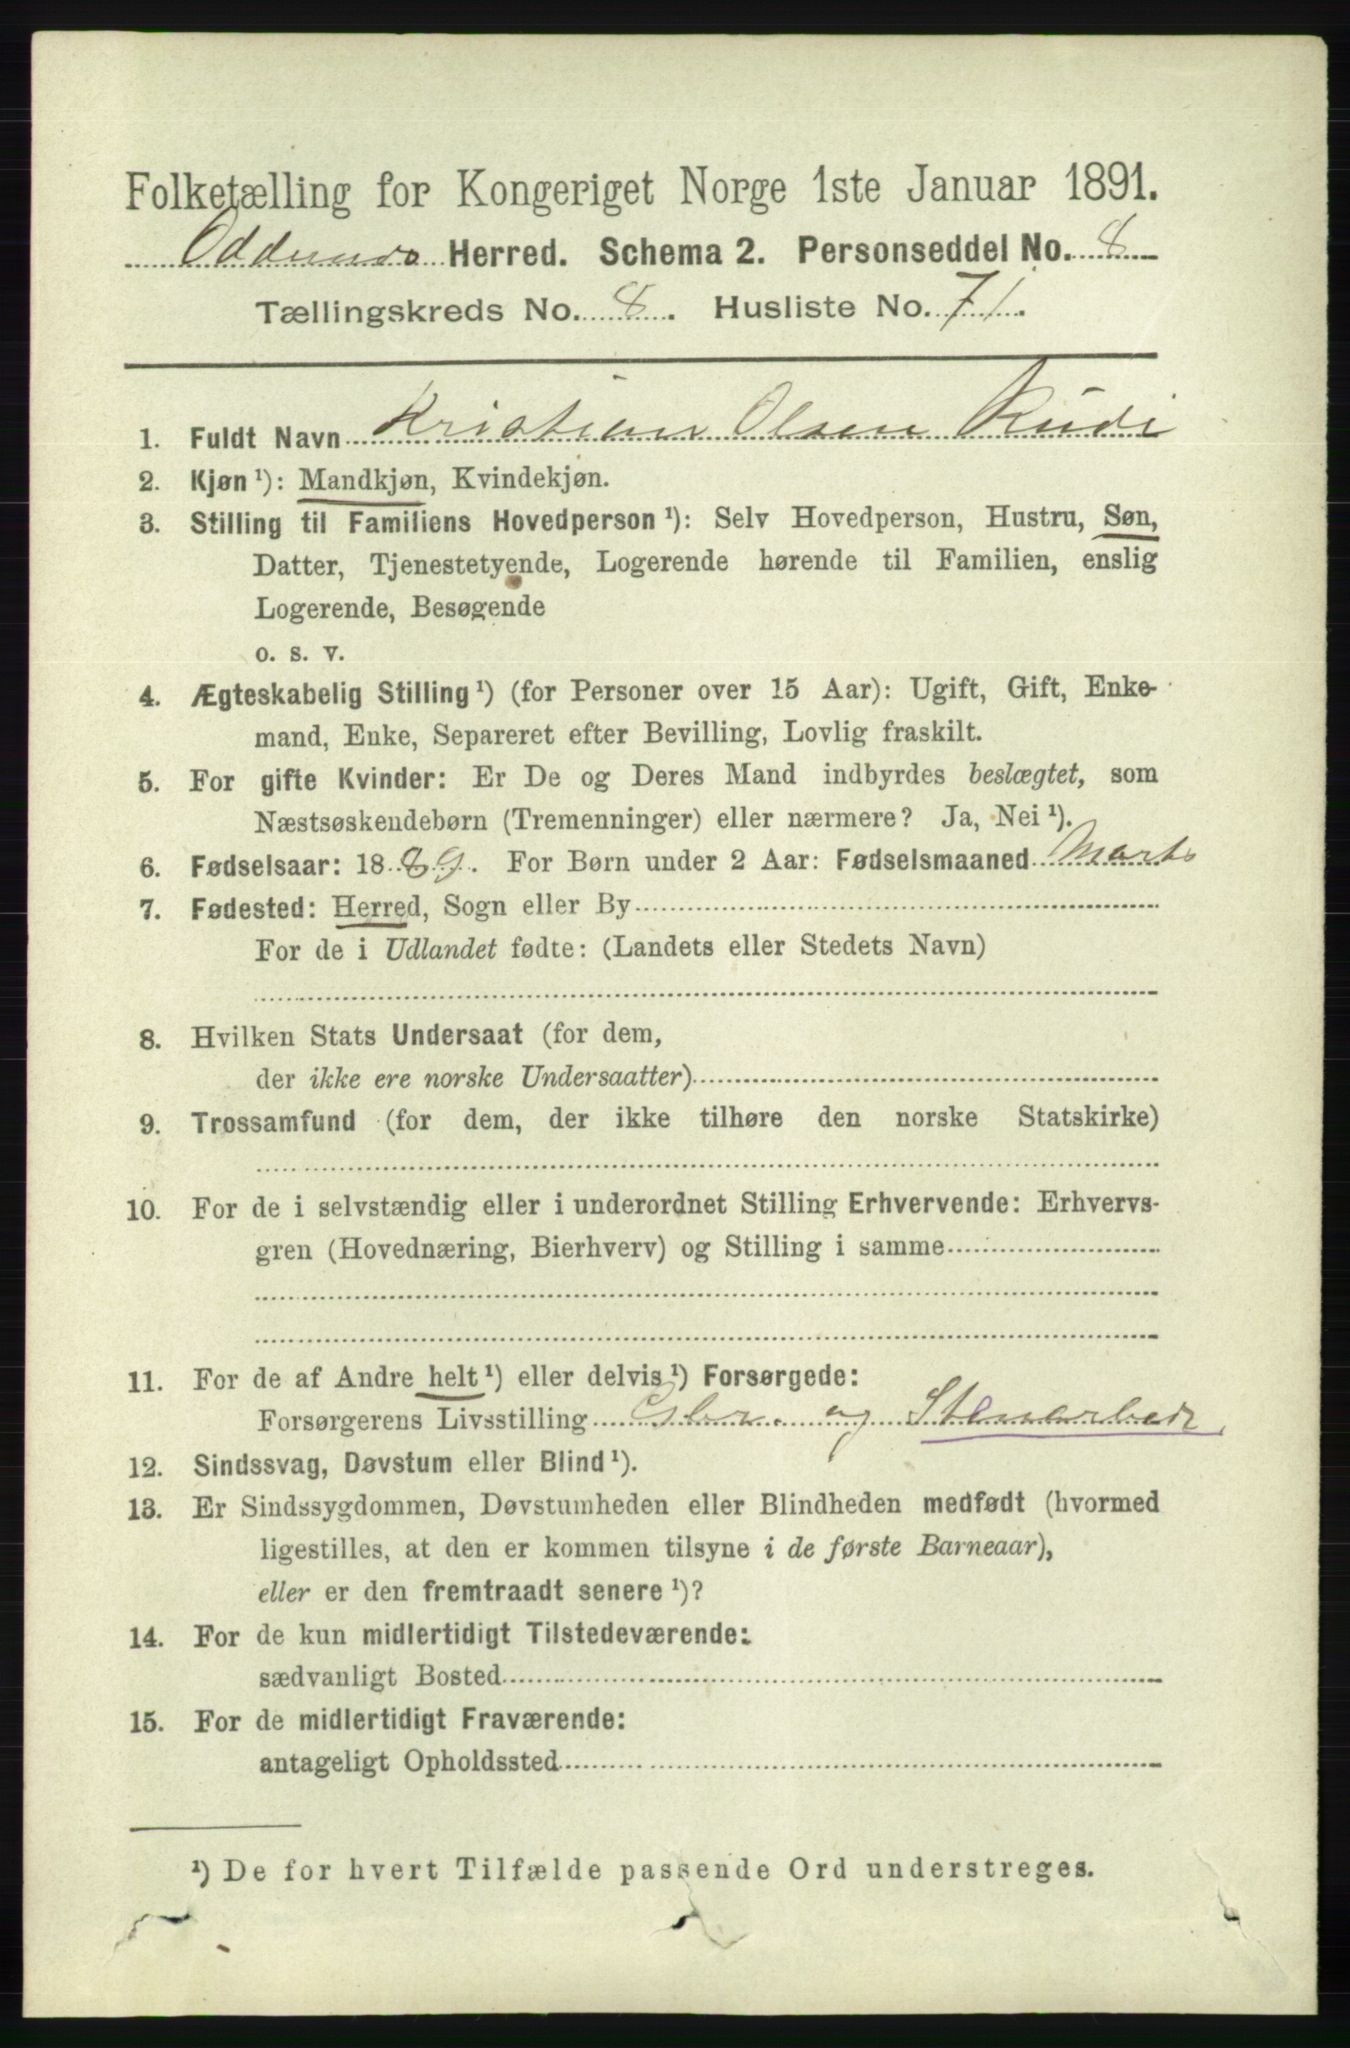 Folketælling for Kongeriget Norge 1ste Januar 1891.
Herred. Schema 2. Personseddel No. 8
Tællingskreds No. 8. Husliste No. 71.
1. Fuldt Navn Kristian Olsen Rudi
2. Kjøn¹): Mandkjøn, Kvindekjøn.
3. Stilling til Familiens Hovedperson¹): Selv Hovedperson, Hustru, Søn,
Datter, Tjenestetyende, Logerende hørende til Familien, enslig
Logerende, Besøgende
o. s. v.
4. Ægteskabelig Stilling¹) (for Personer over 15 Aar): Ugift, Gift, Enke-
mand, Enke, Separeret efter Bevilling, Lovlig fraskilt.
5. For gifte Kvinder: Er De og Deres Mand indbyrdes beslægtet, som
Næstsøskendebørn (Tremenninger) eller nærmere? Ja, Nei¹).
6. Fødselsaar: 1889. For Børn under 2 Aar: Fødselsmaaned Marts
7. Fødested: Herred, Sogn eller By
For de i Udlandet fødte: (Landets eller Stedets Navn)
8. Hvilken Stats Undersaat (for dem,
der ikke ere norske Undersaatter)
9. Trossamfund (for dem, der ikke tilhøre den norske Statskirke)
10. For de i selvstændig eller i underordnet Stilling Erhvervende: Erhvervs-
gren (Hovednæring, Bierhverv) og Stilling i samme
11. For de af Andre helt¹) eller delvis¹) Forsørgede:
Forsørgerens Livsstilling Gbr. og Stenarbeidr
12. Sindssvag, Døvstum eller Blind¹).
13. Er Sindssygdommen, Døvstumheden eller Blindheden medfødt (hvormed
ligestilles, at den er kommen tilsyne i de første Barneaar),
eller er den fremtraadt senere¹)?
14. For de kun midlertidigt Tilstedeværende:
sædvanligt Bosted
15. For de midlertidigt Fraværende:
antageligt Opholdssted
¹) De for hvert Tilfælde passende Ord understreges.